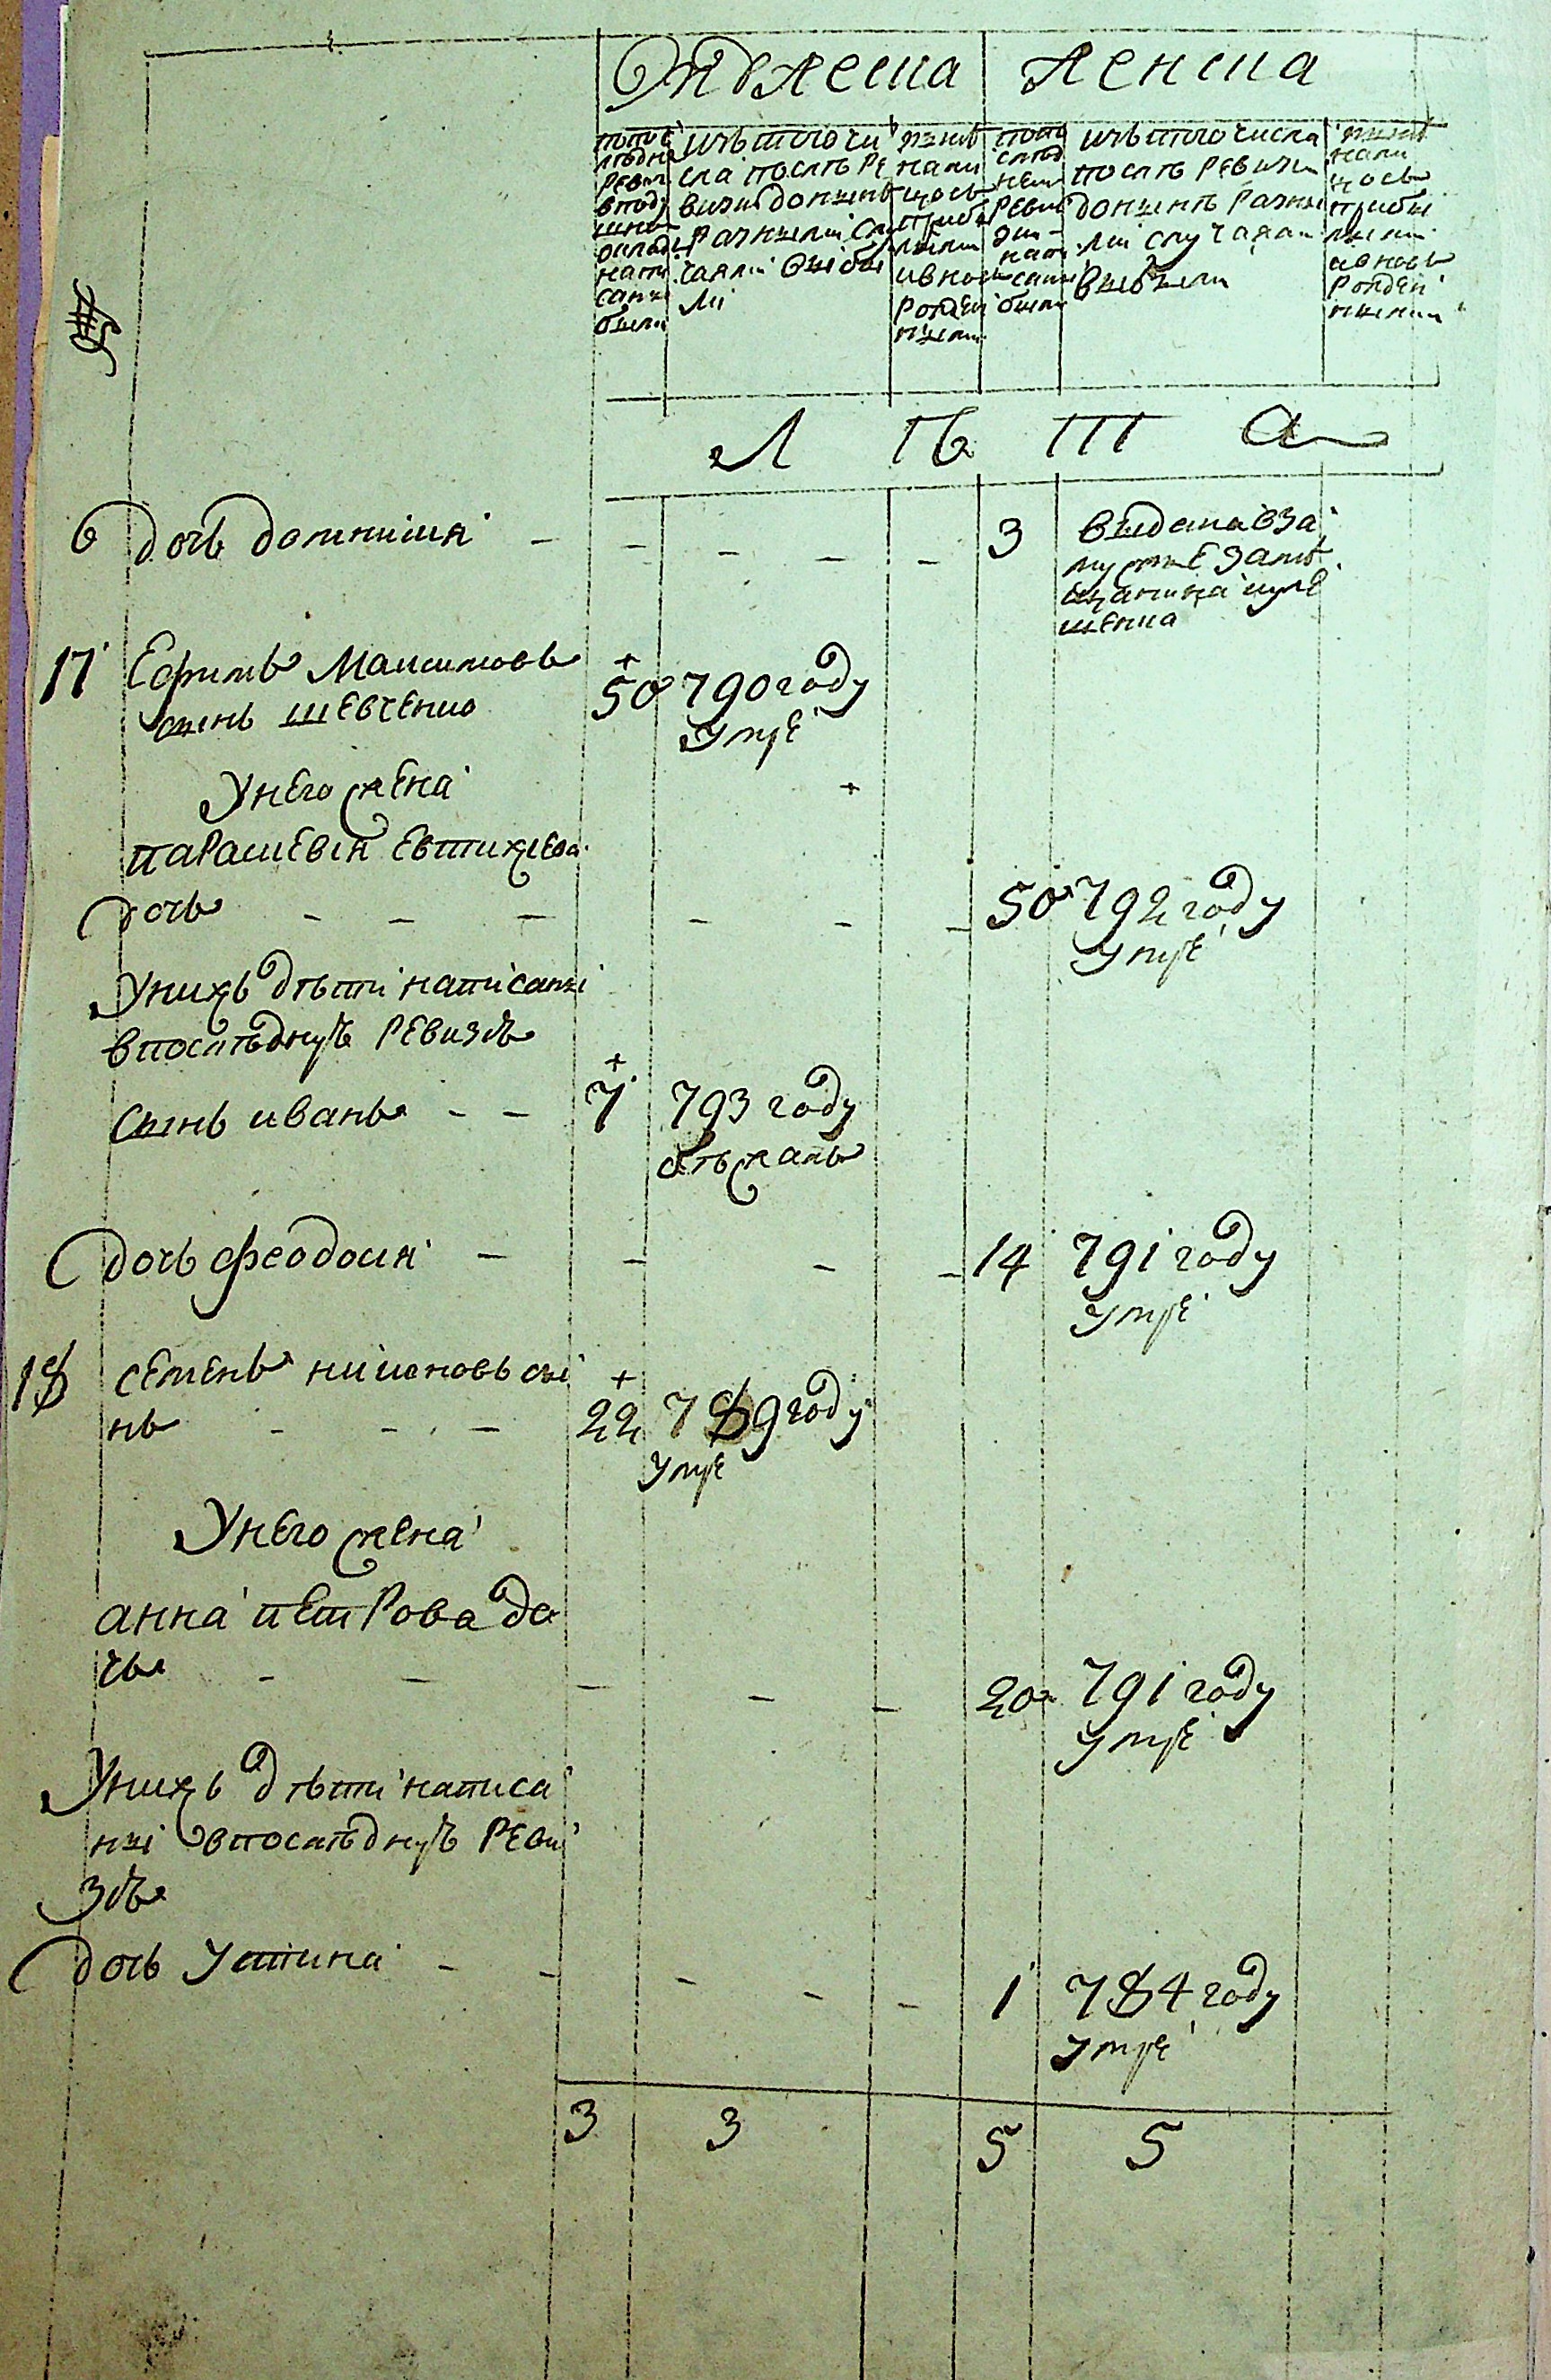 Мужеска
женска
№
попос
ледне
ревиз
вподу
шном
окладе
напи
саны
были
изъ того чи
сла послѣ ре
визии донынѣ
разными слу
чаями выбы
ли
нынѣ
нали
цось
прибы
лыми
ивнов
рожден
ными
попо
след
ней
реви
зии
напи
саны
были
изъ того числа
послѣ ревизии
донынѣ разны
ми случаями
выбыли
нынѣ
нали
цось
прибы
лыми
ивновь
рожден
ными
л ѣ т а
дочь домникия
3
выдана вза
мужъ
17 Ефимъ Максимовъ
сынъ шевченко
50 790 году
умре
Унего жена
параскевия Евтихиева
дочь
50 792 году
умре
Унихъ дѣти написаны
впоследную ревизию
сынъ иванъ
7 793 году
бѣжалъ
дочь феодосия
14 791 году
умре
18 семенъ никоновъ сы
нъ
22 789 году
умре
Унего жена
анна петрова до
чь
20 791 году
умре
Унихъ дѣти написа
ны впоследную реви
зию
дочь устина
1 784 году
умре
3 3 5 5